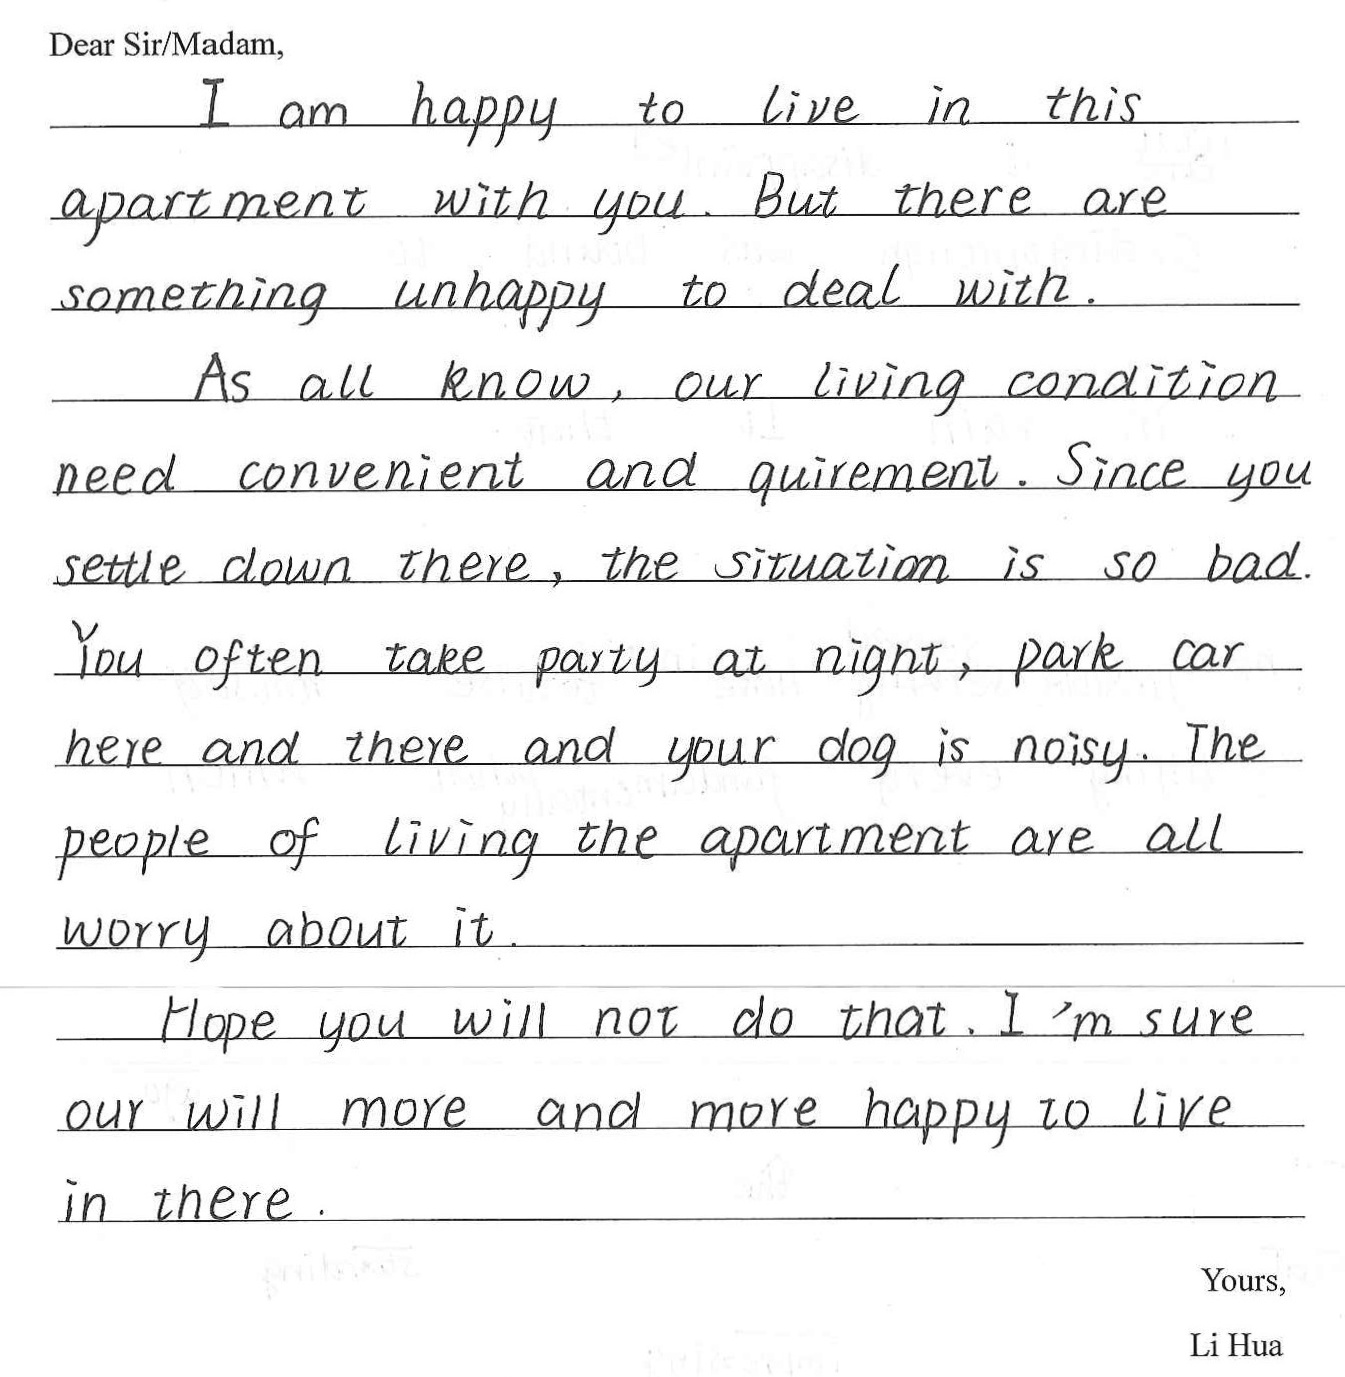 Dear Sir/Madam,
I am happy to live in this
apartment with you. But there are
something unhappy to deal with.
As all know, our living condition
need convenient and quirement. Since you
settle down there, the situation is so bad.
You often take party at night, park car
here and there and your dog is noisy. The
people of living the apartment are all
worry about it.
Hope you will not do that. I'm sure
our will more and more happy to live
in there.
Yours,
Li Hua